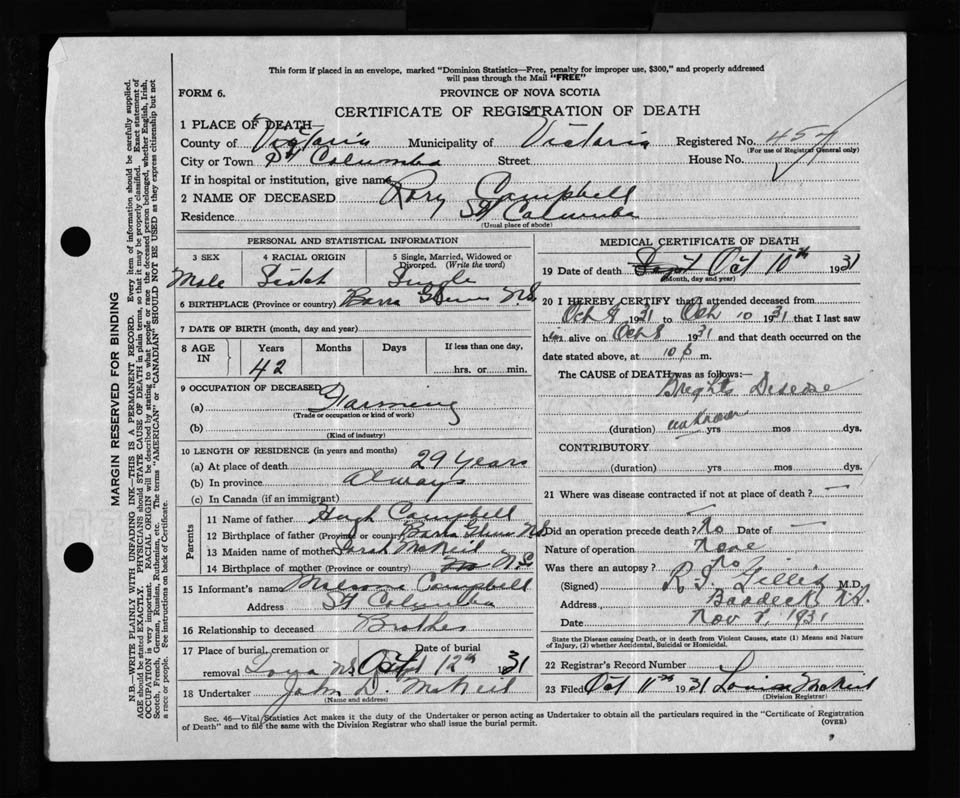 This form if placed in an envelope, marked "Dominion Statistics—Free, penalty for improper use, $300," and properly addressed
will pass through the Mail "FREE"
FORM 6.
PROVINCE OF NOVA SCOTIA
CERTIFICATE OF REGISTRATION OF DEATH
1 PLACE OF DEATH—
County of Victoria Municipality of Victoria Registered No. 457
(For use of Registrar General only)
City or Town St Columba Street House No.
If in hospital or institution, give name
2 NAME OF DECEASED Rory Campbell
Residence St Columba
(Usual place of abode)
PERSONAL AND STATISTICAL INFORMATION
3 SEX 4 RACIAL ORIGIN 5 Single, Married, Widowed or
Divorced. (Write the word)
Male Scotch Single
6 BIRTHPLACE (Province or country) Barra Glens N.S.
7 DATE OF BIRTH (month, day and year)
8 AGE IN Years Months Days If less than one day,
42 hrs. or min.
9 OCCUPATION OF DECEASED
(a) Farmeing
(Trade or occupation or kind of work)
(b)
(Kind of industry)
10 LENGTH OF RESIDENCE (in years and months)
(a) At place of death 29 Years
(b) In province Always
(c) In Canada (if an immigrant)
Parents
11 Name of father Hugh Campbell
12 Birthplace of father (Province or country) Barra Glens N.S.
13 Maiden name of mother Sarah McNeil
14 Birthplace of mother (Province or country) N.S.
15 Informant's name Malcom Campbell
Address St Columba
16 Relationship to deceased Brother
17 Place of burial, cremation or Date of burial
removal Iona N.S. Oct 12th 1931
18 Undertaker John D. McNeil
(Name and address)
MEDICAL CERTIFICATE OF DEATH
19 Date of death Sept Oct 10th 1931
(Month, day and year)
20 I HEREBY CERTIFY that I attended deceased from
Oct 8 1931 to Oct 10 1931 that I last saw
him alive on Oct 8 1931 and that death occurred on the
date stated above, at 10 p m.
The CAUSE OF DEATH was as follows:—
Brights Disease
unknown
(duration) yrs mos dys.
CONTRIBUTORY
(duration) yrs mos dys.
21 Where was disease contracted if not at place of death? —
Did an operation precede death? No Date of —
Nature of operation None
Was there an autopsy? No
(Signed) R. I. Gillis M.D.
Address Baddeck N.S.
Date Nov 9, 1931
State the Disease causing Death, or in death from Violent Causes, state (1) Means and Nature
of Injury, (2) whether Accidental, Suicidal or Homicidal.
22 Registrar's Record Number
23 Filed Oct 11th 1931 Louise McNeil
(Division Registrar)
Sec. 46—Vital Statistics Act makes it the duty of the Undertaker or person acting as Undertaker to obtain all the particulars required in the "Certificate of Registration
of Death" and to file the same with the Division Registrar who shall issue the burial permit.
(OVER)
MARGIN RESERVED FOR BINDING
N.B.—WRITE PLAINLY WITH UNFADING INK—THIS IS A PERMANENT RECORD. Every item of information should be carefully supplied.
AGE should be stated EXACTLY. PHYSICIANS should STATE CAUSE OF DEATH in plain terms, so that it may be properly classified. Exact statement of
OCCUPATION is very important. RACIAL ORIGIN will be described by stating to what people or race the deceased person belonged, whether English, Irish,
Scotch, French, German, Russian, Ruthenian, etc. The terms "AMERICAN" or "CANADIAN" SHOULD NOT BE USED as they express citizenship but not
a race or people. See instructions on back of Certificate.